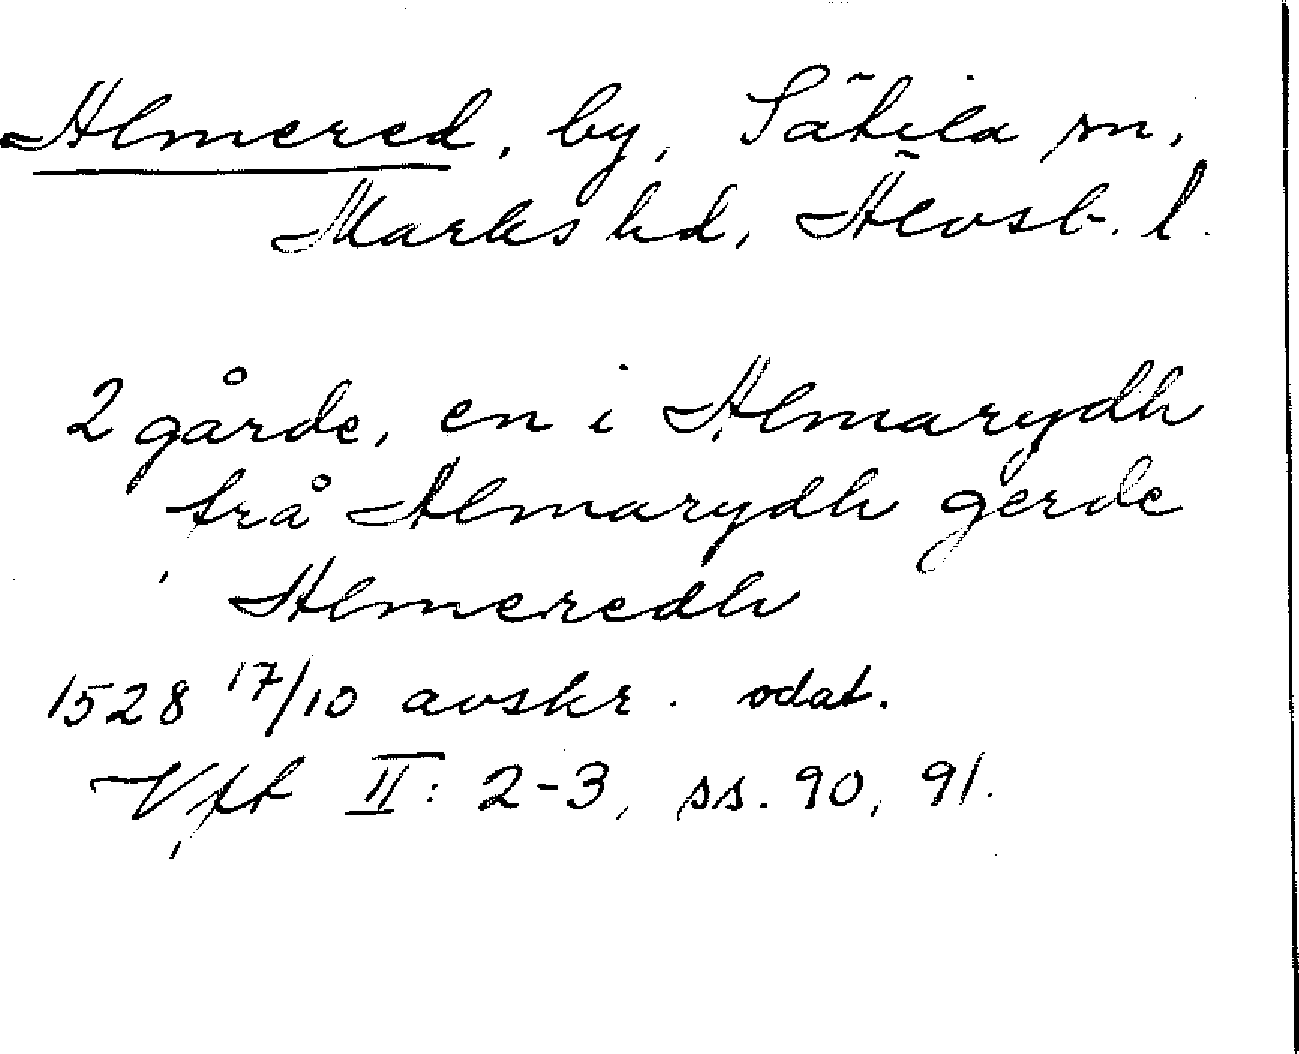 Almered, by, Sätila sn,
Marks hd, Älvsb. l.
2 gårde, en i Almarydh
frå Almarydh gerde
Almeredh
1528 17/10 avskr. odat.
Vft II: 2-3, ss. 90, 91.